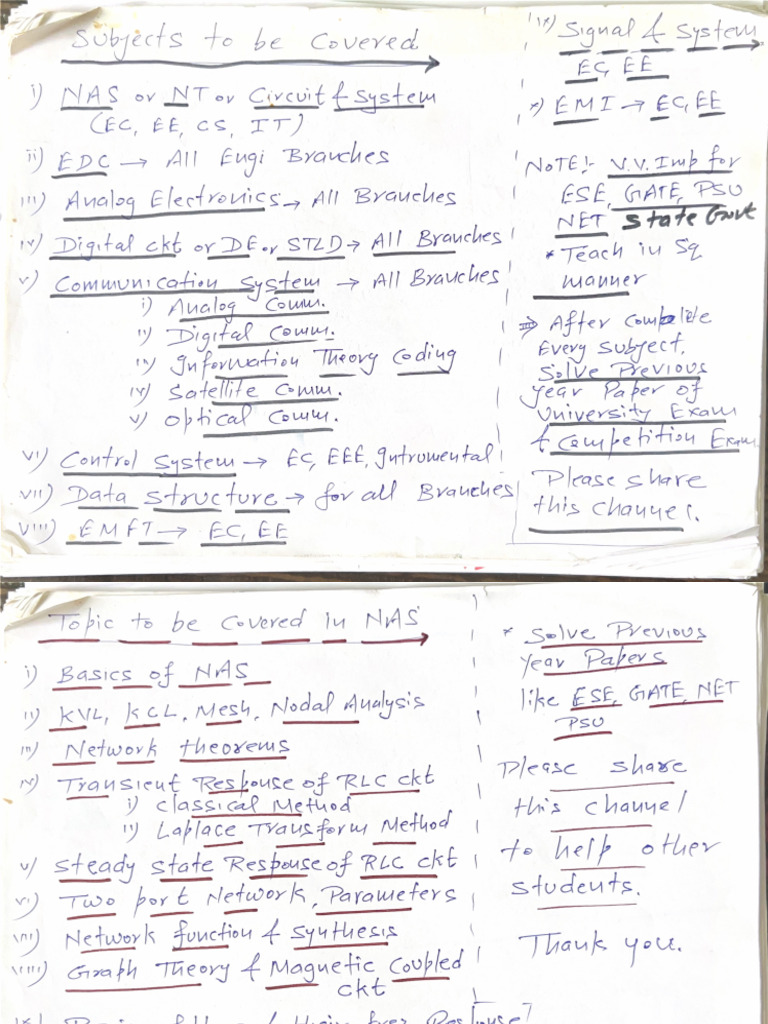 Subjects to be Covered
i) NAS or NT or Circuit & System
(EC, EE, CS, IT)
ii) EDC → All Engi Branches
iii) Analog Electronics → All Branches
iv) Digital ckt or DE or STLD → All Branches
v) Communication System → All Branches
i) Analog Comm.
ii) Digital Comm.
iii) Information Theory Coding
iv) Satellite Comm.
v) Optical Comm.
vi) Control System → EC, EEE, Intrumental
vii) Data Structure → for all Branches
viii) EMFT → EC, EE
ix) Signal & System
EC, EE
x) EMI → EC, EE
NOTE:- V.V. Imp for
ESE, GATE, PSU
NET State Govt
* Teach in Sq
manner
⇒ After complete
Every subject,
Solve Previous
year Paper of
University Exam
& Competition Exam
Please share
this channel.
Topic to be Covered in NAS
i) Basics of NAS
ii) KVL, KCL, Mesh, Nodal Analysis
iii) Network theorems
iv) Transient Response of RLC ckt
i) Classical Method
ii) Laplace Transform Method
v) Steady State Response of RLC ckt
vi) Two port Network, Parameters
vii) Network function & synthesis
viii) Graph Theory & Magnetic Coupled
ckt
* Solve Previous
year Papers
like ESE, GATE, NET
PSU
Please share
this channel
to help other
students.
Thank you.